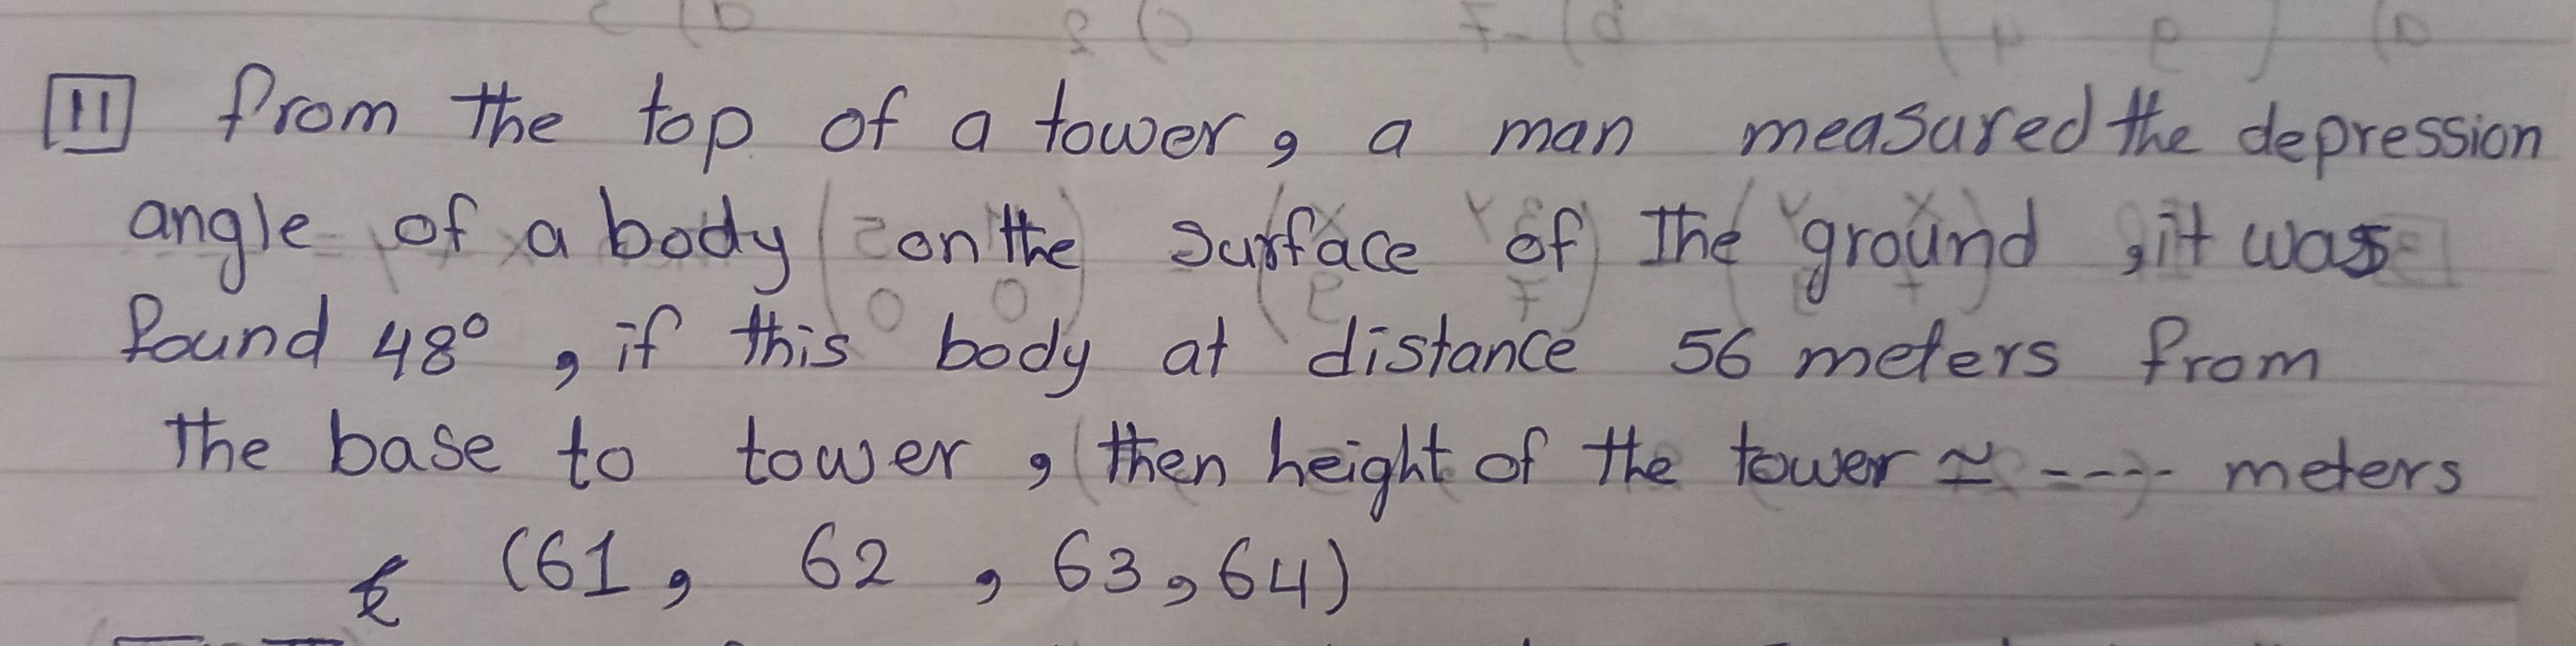 11 from the top of a tower, a man measured the depression
angle of a body on the surface of the ground, it was
found 48°, if this body at distance 56 meters from
the base to tower, then height of the tower ≃ ---- meters
(61, 62, 63, 64)